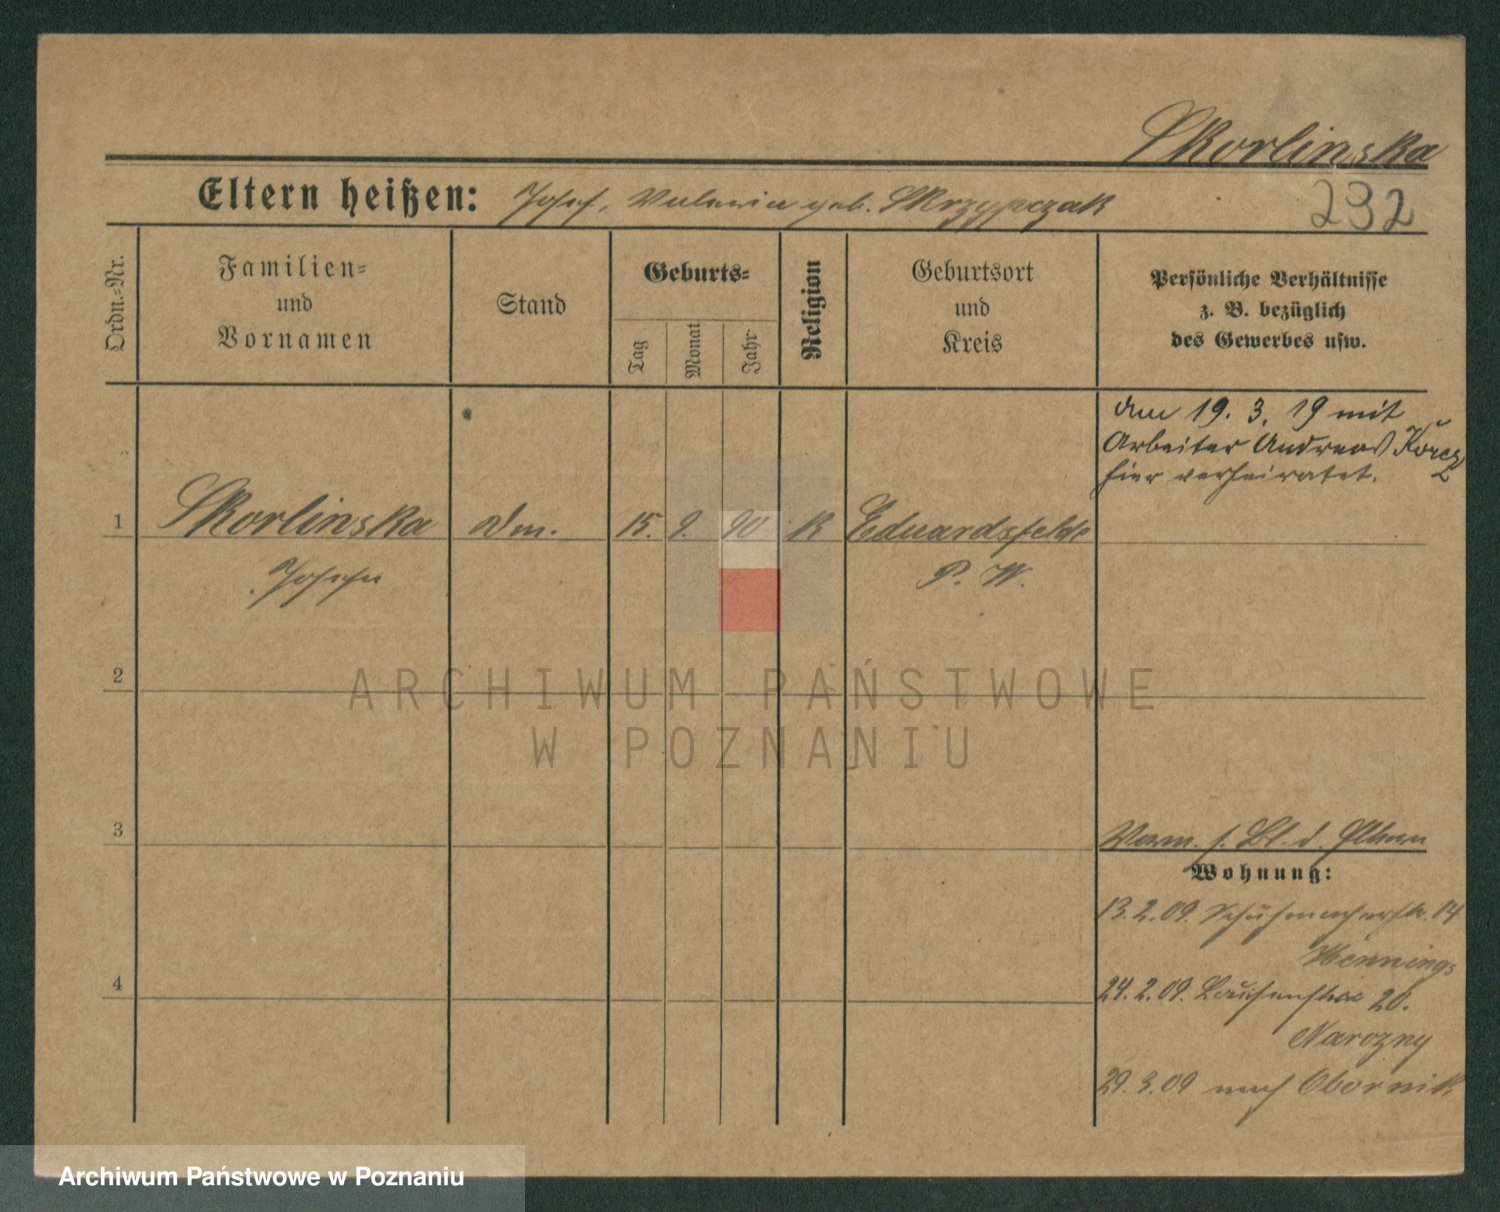 Skorlinska
Eltern heißen: Josef, Valeria geb. Skrzypczak
232
Ordn.-Nr.
Familien-
und
Vornamen
Stand
Geburts-
Tag
Monat
Jahr
Religion
Geburtsort
und
Kreis
Persönliche Verhältnisse
z. B. bezüglich
des Gewerbes usw.
den 19. 3. 19 mit
Arbeiter Andreas
hier verheiratet.
1 Skorlinska 15. 9. 90 K Eduardsfelde
Josefa P. W.
2
ARCHIWUM PAŃSTWOWE
W POZNANIU
3
Vorm. s. Bl. d. Eltern
Wohnung:
13.2.09. Schuhmacherstr. 14
Hennings
4
24.2.09. 20.
Narozny
29.3.09 nach Obornik
Archiwum Państwowe w Poznaniu